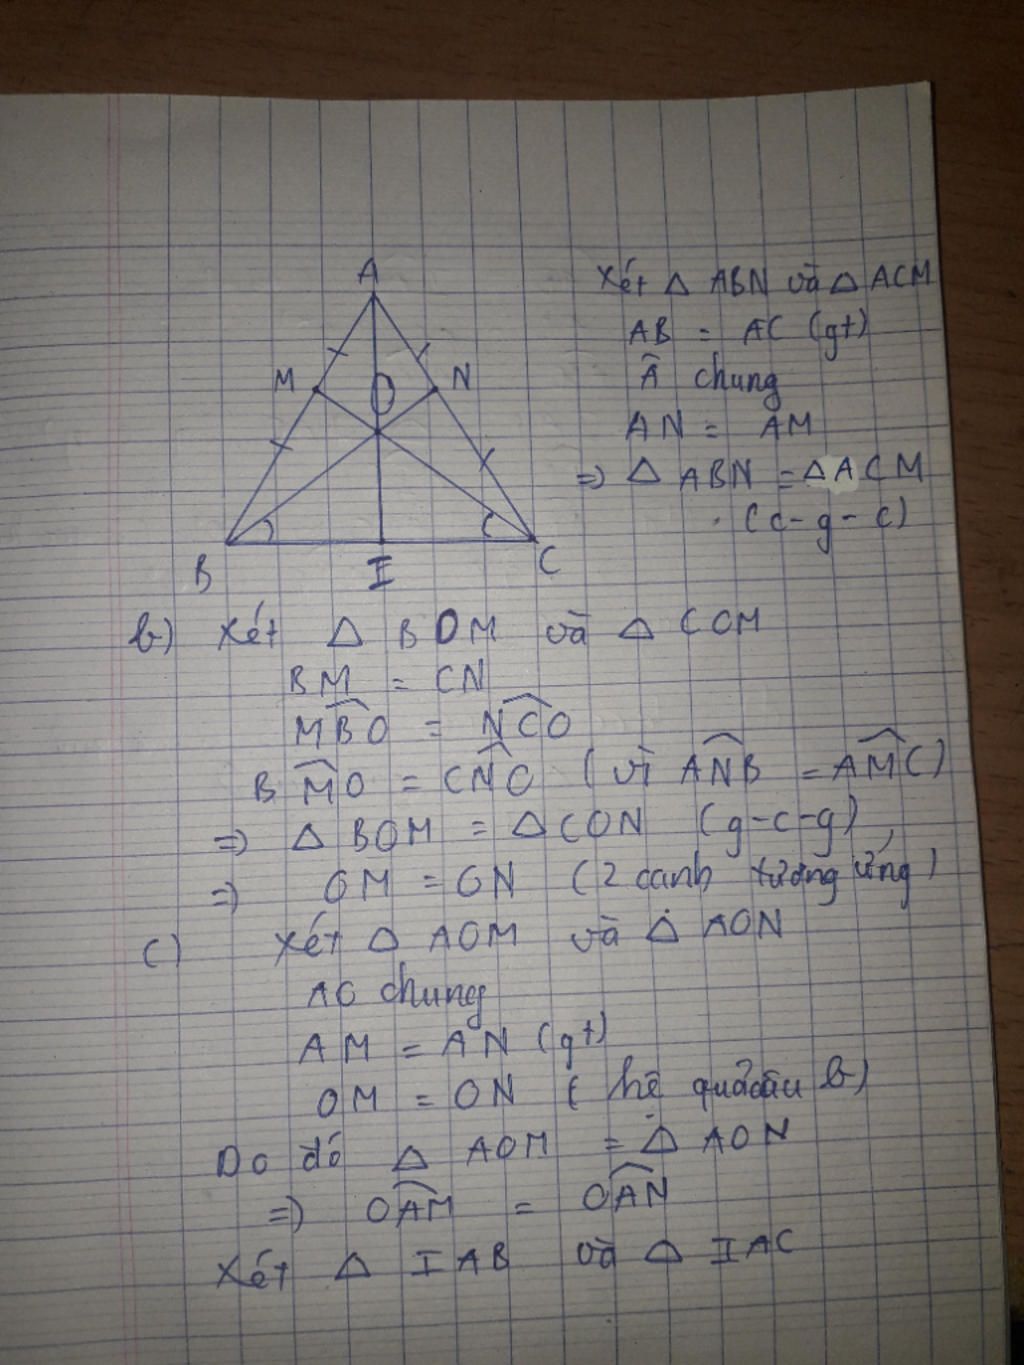 A
M
N
O
B
I
C
Xét △ ABN và △ ACM
AB = AC (gt)
Â chung
AN = AM
=> △ ABN = △ ACM
(c-g-c)
b) Xét △ BOM và △ COM
BM = CN
M͡BO = N͡CO
B M͡O = CN͡O (vì AN͡B = AM͡C)
=> △ BOM = △ CON (g-c-g)
=> OM = ON (2 cạnh tương ứng)
c) Xét △ AOM và △ AON
AO chung
AM = AN (gt)
OM = ON (hệ quả câu b)
Do đó △ AOM = △ AON
=> OA͡M = OA͡N
Xét △ IAB và △ IAC